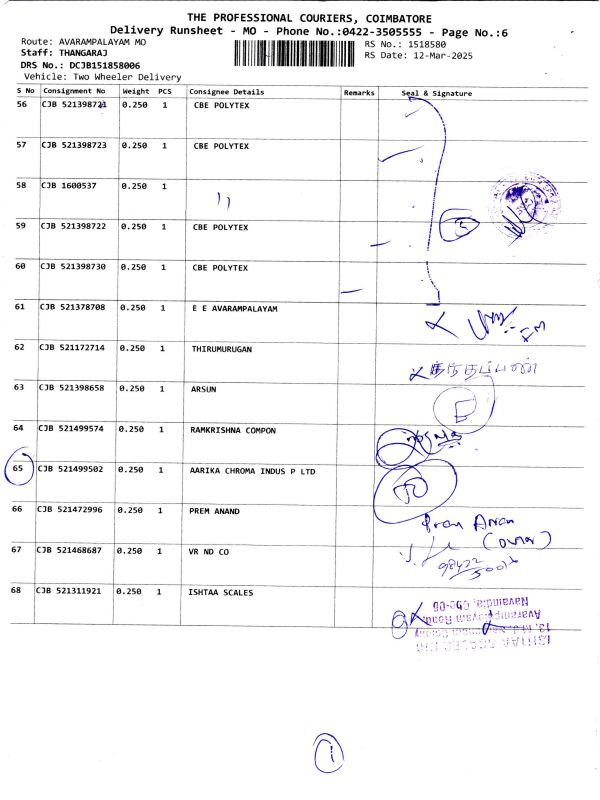 THE PROFESSIONAL COURIERS, COIMBATORE
Delivery Runsheet - MO - Phone No.:0422-3505555 - Page No.:6
Route: AVARAMPALAYAM MO
RS No.: 1518580
Staff: THANGARAJ
RS Date: 12-Mar-2025
DRS No.: DCJB151858006
Vehicle: Two Wheeler Delivery
S No Consignment No Weight PCS Consignee Details Remarks Seal & Signature
56 CJB 521398721 0.250 1 CBE POLYTEX
57 CJB 521398723 0.250 1 CBE POLYTEX
58 CJB 1600537 0.250 1 "
59 CJB 521398722 0.250 1 CBE POLYTEX
60 CJB 521398730 0.250 1 CBE POLYTEX
61 CJB 521378708 0.250 1 E E AVARAMPALAYAM
62 CJB 521172714 0.250 1 THIRUMURUGAN
63 CJB 521398658 0.250 1 ARSUN
E
64 CJB 521499574 0.250 1 RAMKRISHNA COMPON
65 CJB 521499502 0.250 1 AARIKA CHROMA INDUS P LTD
66 CJB 521472996 0.250 1 PREM ANAND
Prem Anan
(owner)
67 CJB 521468687 0.250 1 VR ND CO
68 CJB 521311921 0.250 1 ISHTAA SCALES
Navaindia, Cbe-06
Avarampalayam Road,
1